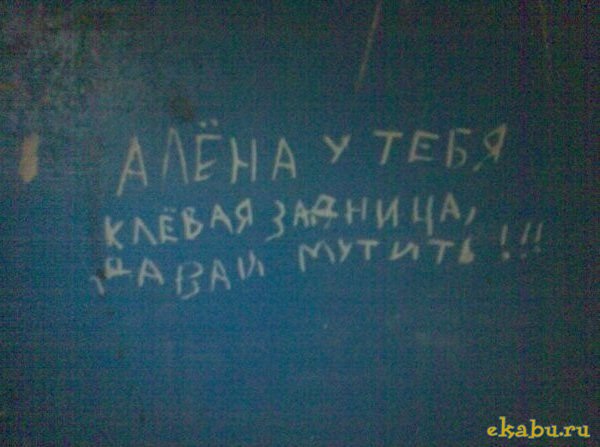 АЛЁНА У ТЕБЯ
КЛЁВАЯ ЗАДНИЦА,
ДАВАЙ МУТИТЬ!!!
ekabu.ru